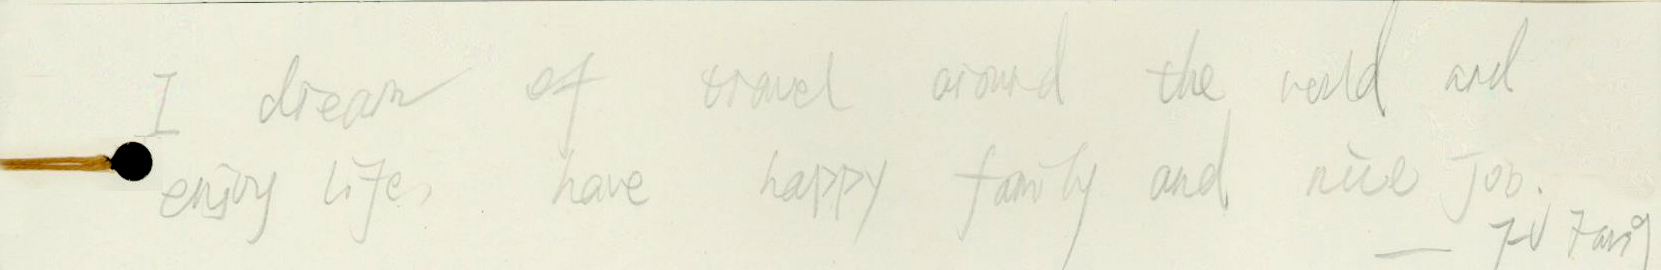 I dream of travel around the world and
enjoy life, have happy family and nice job.
— Fu Fang